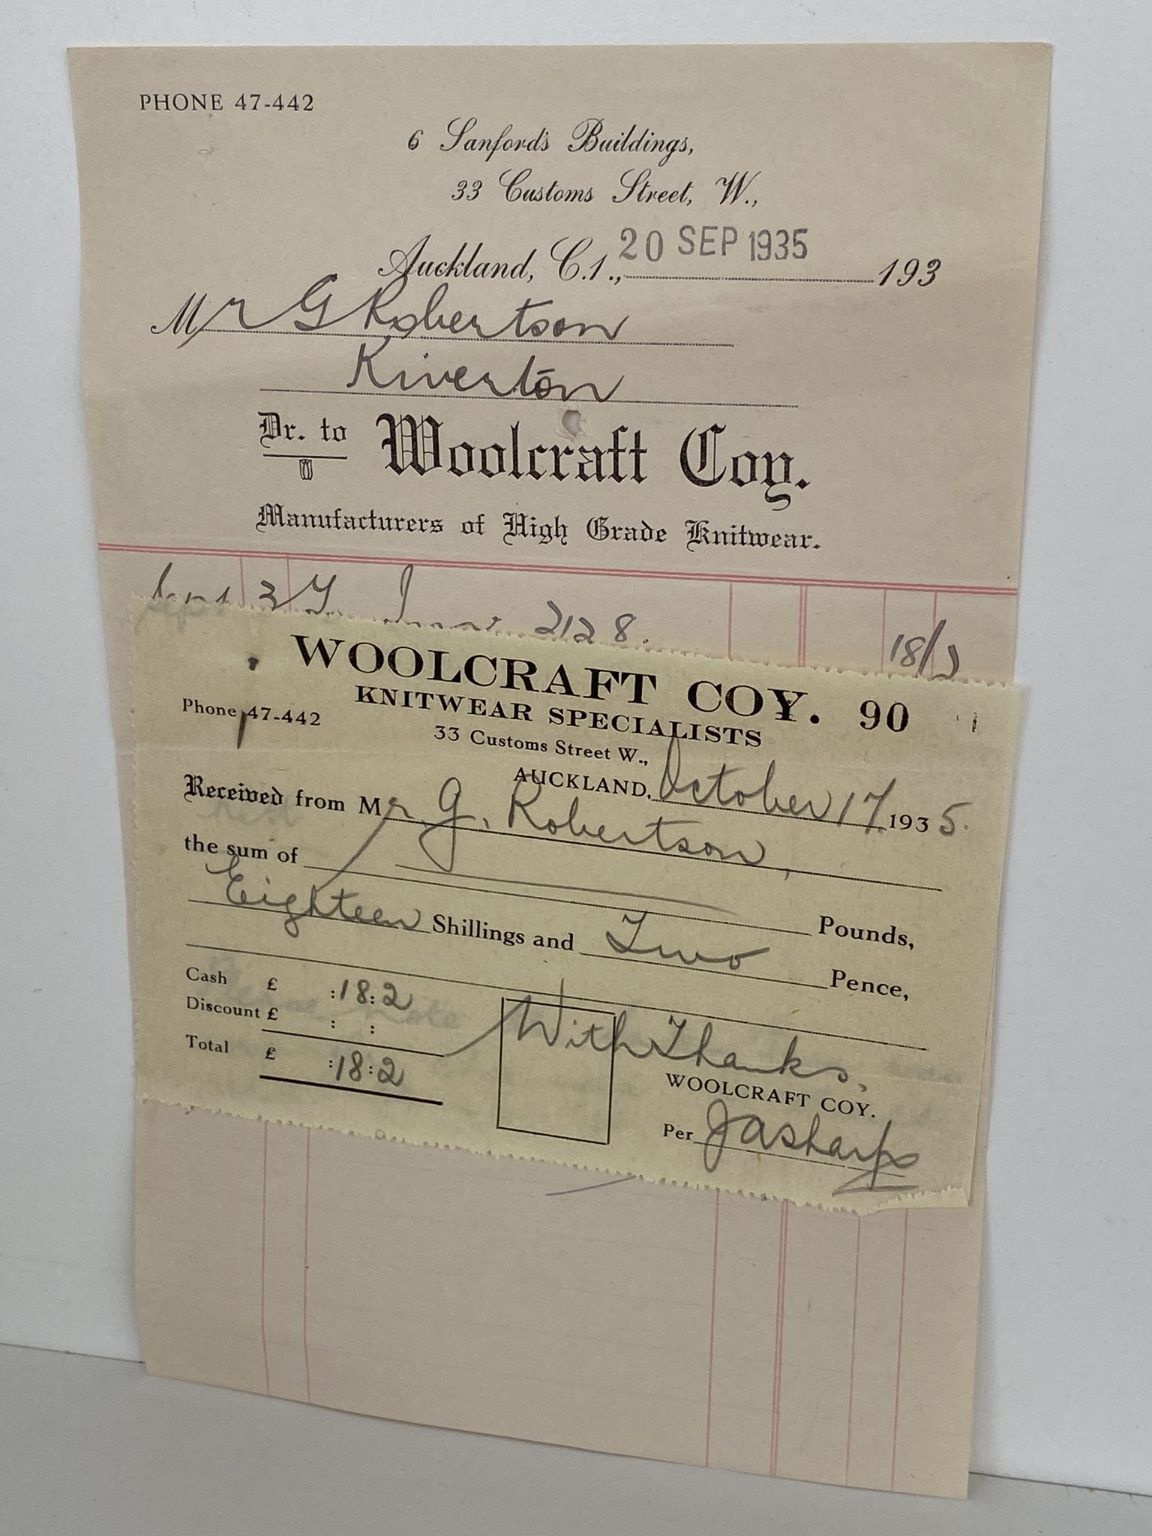 PHONE 47-442
6 Sanford's Buildings,
33 Customs Street, W.,
Auckland, C.1., 20 SEP 1935 193
Mr G Robertson
Riverton
Dr. to Woolcraft Coy.
Manufacturers of High Grade Knitwear.
Sept 3 To 2128. 18/2
WOOLCRAFT COY. 90
KNITWEAR SPECIALISTS
Phone 47-442
33 Customs Street W.,
AUCKLAND, October 17 1935.
Received from Mr G. Robertson,
the sum of Pounds,
Eighteen Shillings and Two Pence,
Cash £ :18:2
Discount £ : :
Total £ :18:2
With Thanks.
WOOLCRAFT COY.
Per JASharp